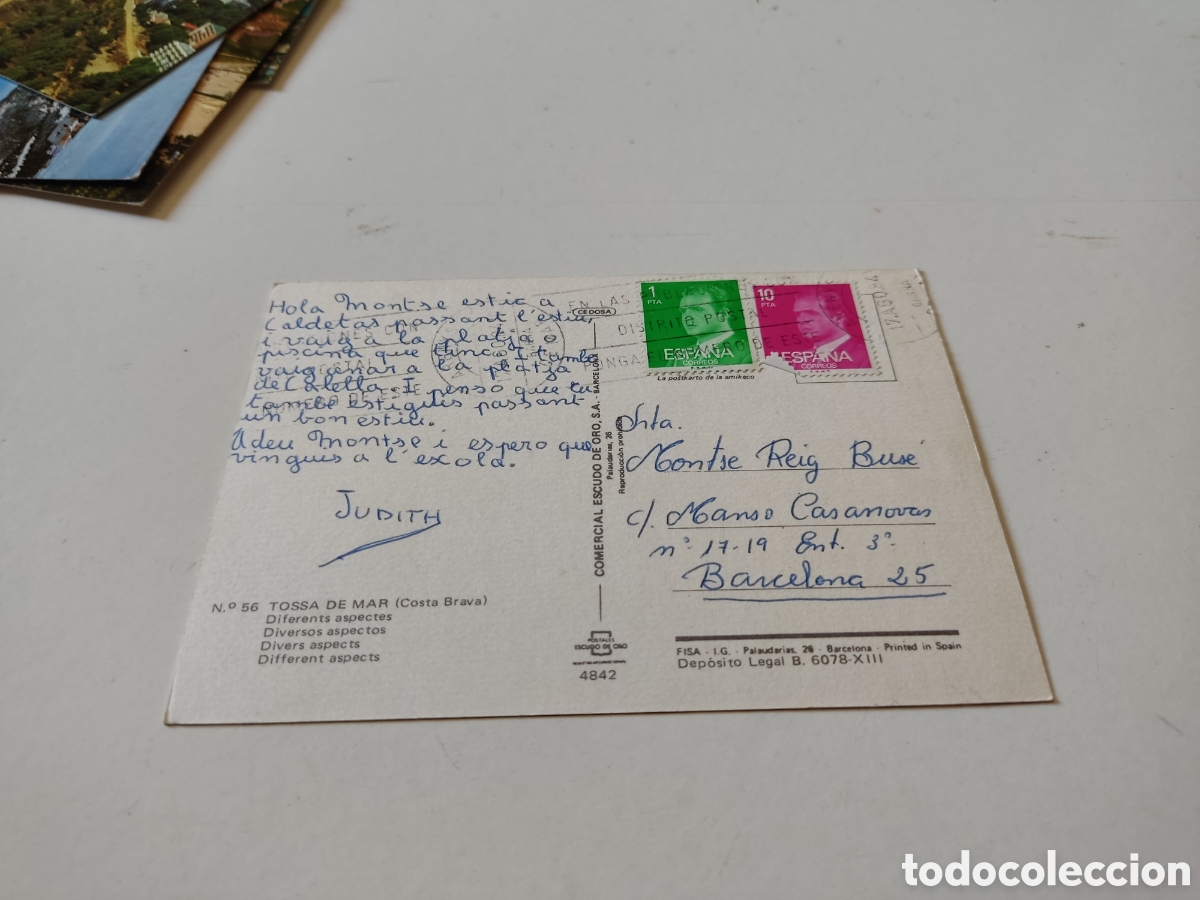 Hola Montse estic a
Caldetas passant l'estiu,
i vaig a la platja o
piscina que tinc. I també
vaig anar a la platja
de Calella. I penso que tu
també estiguis passant
un bon estiu.
Adeu Montse i espero que
vinguis a l'escola.
JUDITH
N.º 56 TOSSA DE MAR (Costa Brava)
Diferents aspectes
Diversos aspectos
Divers aspects
Different aspects
CEDOSA
COMERCIAL ESCUDO DE ORO, S.A. - BARCELONA
Palaudarias, 26
Reproducción prohibida
POSTALES
ESCUDO DE ORO
4842
EN LAS
DISTRITO POSTAL
PONGA EL NUMERO DE ESTE
1
PTA
ESPAÑA
CORREOS
10
PTA
ESPAÑA
CORREOS
12 AGO 84
La postkarto de la amikeco
Srta.
Montse Reig Busé
c/. Manso Casanovas
nº 17-19 Ent. 3ª
Barcelona 25
FISA - I.G. - Palaudarias, 26 - Barcelona - Printed in Spain
Depósito Legal B. 6078-XIII
todocoleccion